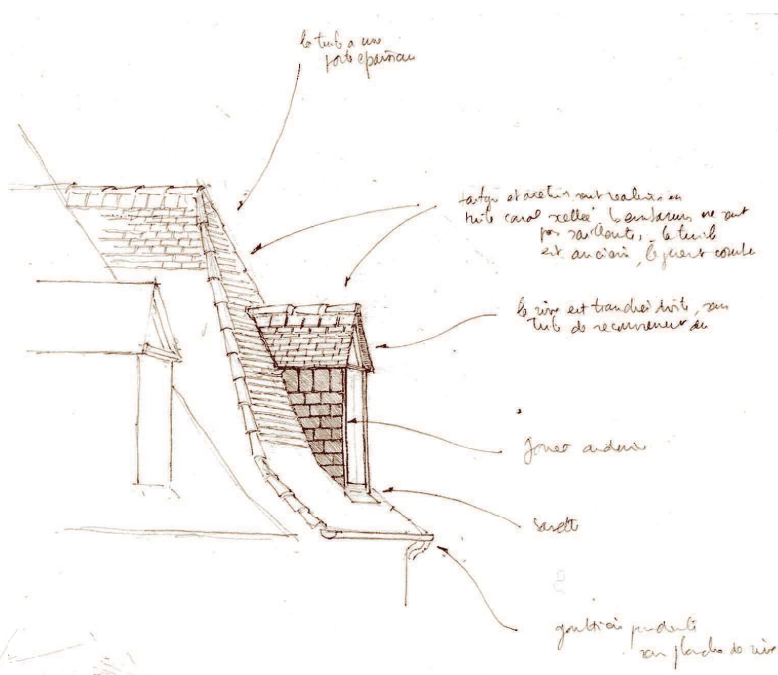 la tuile a une
forte épaisseur
faîtage et arêtiers sont réalisés en
tuile canal scellée. ne sont
pas saillants, la tuile
est ancienne, légèrement
la rive est tranchée droite, sans
tuile de recouvrement
jouée ardoise
bavette
gouttière pendante
sans planche de rive